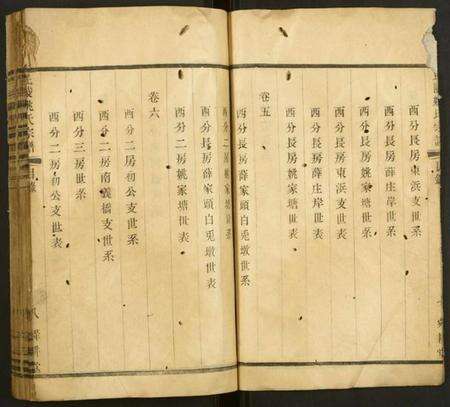 西分長房東浜支世系
西分長房薛庄岸世系
西分長房姚家塘世系
西分長房東浜支世表
西分長房薛庄岸世表
西分長房姚家塘世表
卷五
西分長房薛家頭白兎墩世系
西分二房姚家塘世系
西分長房薛家頭白兎墩世表
西分二房姚家塘世表
卷六
西分二房初公支世系
西分二房南義橋支世系
西分三房世系
西分二房初公支世表
陵姚氏宗譜 目錄 八